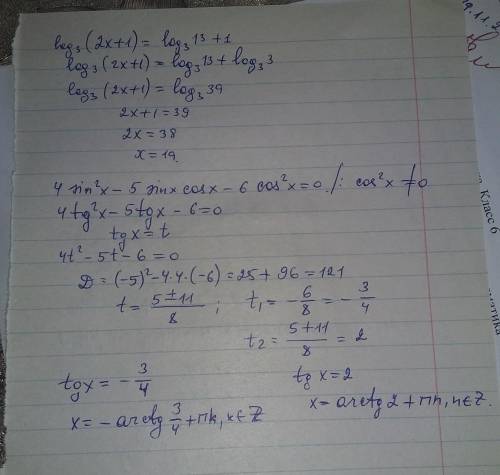 log₃(2x+1) = log₃13 + 1
log₃(2x+1) = log₃13 + log₃3
log₃(2x+1) = log₃39
2x+1 = 39
2x = 38
x = 19
4 sin²x − 5 sinx cosx − 6 cos²x = 0 /: cos²x ≠ 0
4tg²x − 5tgx − 6 = 0
tgx = t
4t² − 5t − 6 = 0
D = (−5)² − 4·4·(−6) = 25 + 96 = 121
t = (5±11)/8 ; t₁ = −6/8 = −3/4
t₂ = (5+11)/8 = 2
tgx = −3/4
x = −arctg 3/4 + πk, k∈Z
tg x = 2
x = arctg2 + πn, n∈Z.
Класс 6